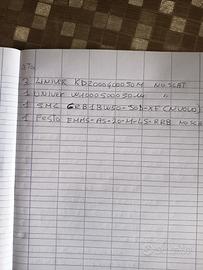 QTA
2 UNIVER KD2000400050M NO SCAT
1 UNIVER W1000500050M "
1 SMC CRB1BW50-30D-XF (NUOVO)
1 Festo EMMS-AS-70-M-LS-RRB NO SCAT